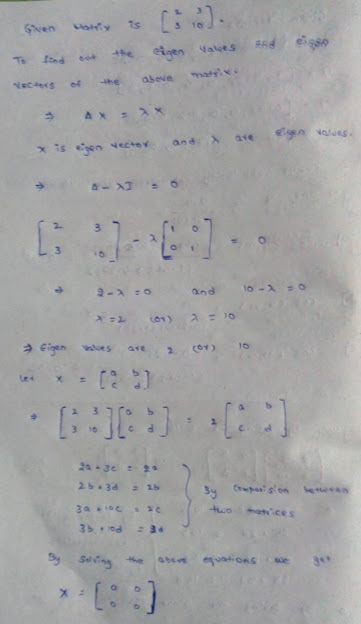 Given Matrix is [2 3
3 10].
To find out the eigen values and eigen
vectors of the above matrix.
⇒ A X = λ X
X is eigen vector and λ are eigen values.
⇒ A - λI = 0
[2 3
3 10] - λ [1 0
0 1] = 0
⇒ 2-λ = 0 and 10-λ = 0
λ = 2 (or) λ = 10
⇒ Eigen values are 2 (or) 10
let X = [a b
c d]
⇒ [2 3
3 10] [a b
c d] = 2 [a b
c d]
2a + 3c = 2a
2b + 3d = 2b
3a + 10c = 2c
3b + 10d = 2d
} By comparision between
two matrices
By solving the above equations we get
X = [0 0
0 0]